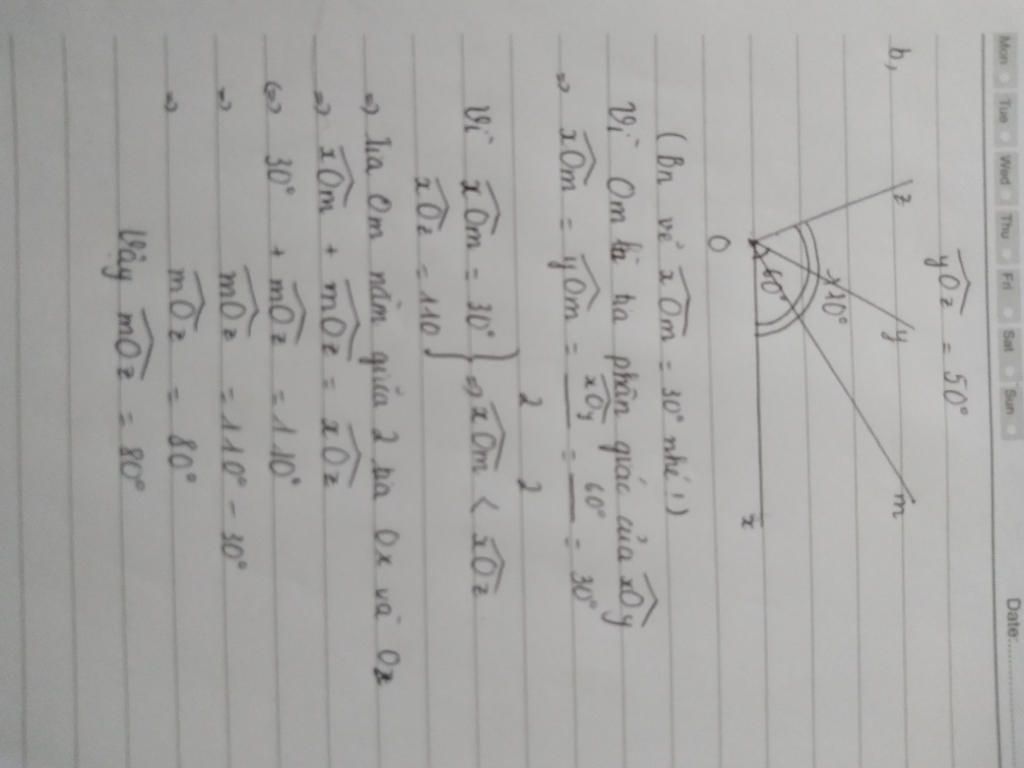 Mon Tue Wed Thu Fri Sat Sun
Date:
yOz = 50°
b,
z
y
m
110°
60°
O
x
(Bn vẽ xOm = 30° nhé!)
Vì Om là tia phân giác của xOy
⇒ xOm = yOm = xOy/2 = 60°/2 = 30°
Vì xOm = 30° } ⇒ xOm < xOz
xOz = 110
⇒ Tia Om nằm giữa 2 tia Ox và Oz
⇒ xOm + mOz = xOz
(⇒ 30° + mOz = 110°
⇒ mOz = 110° - 30°
⇒ mOz = 80°
Vậy mOz = 80°